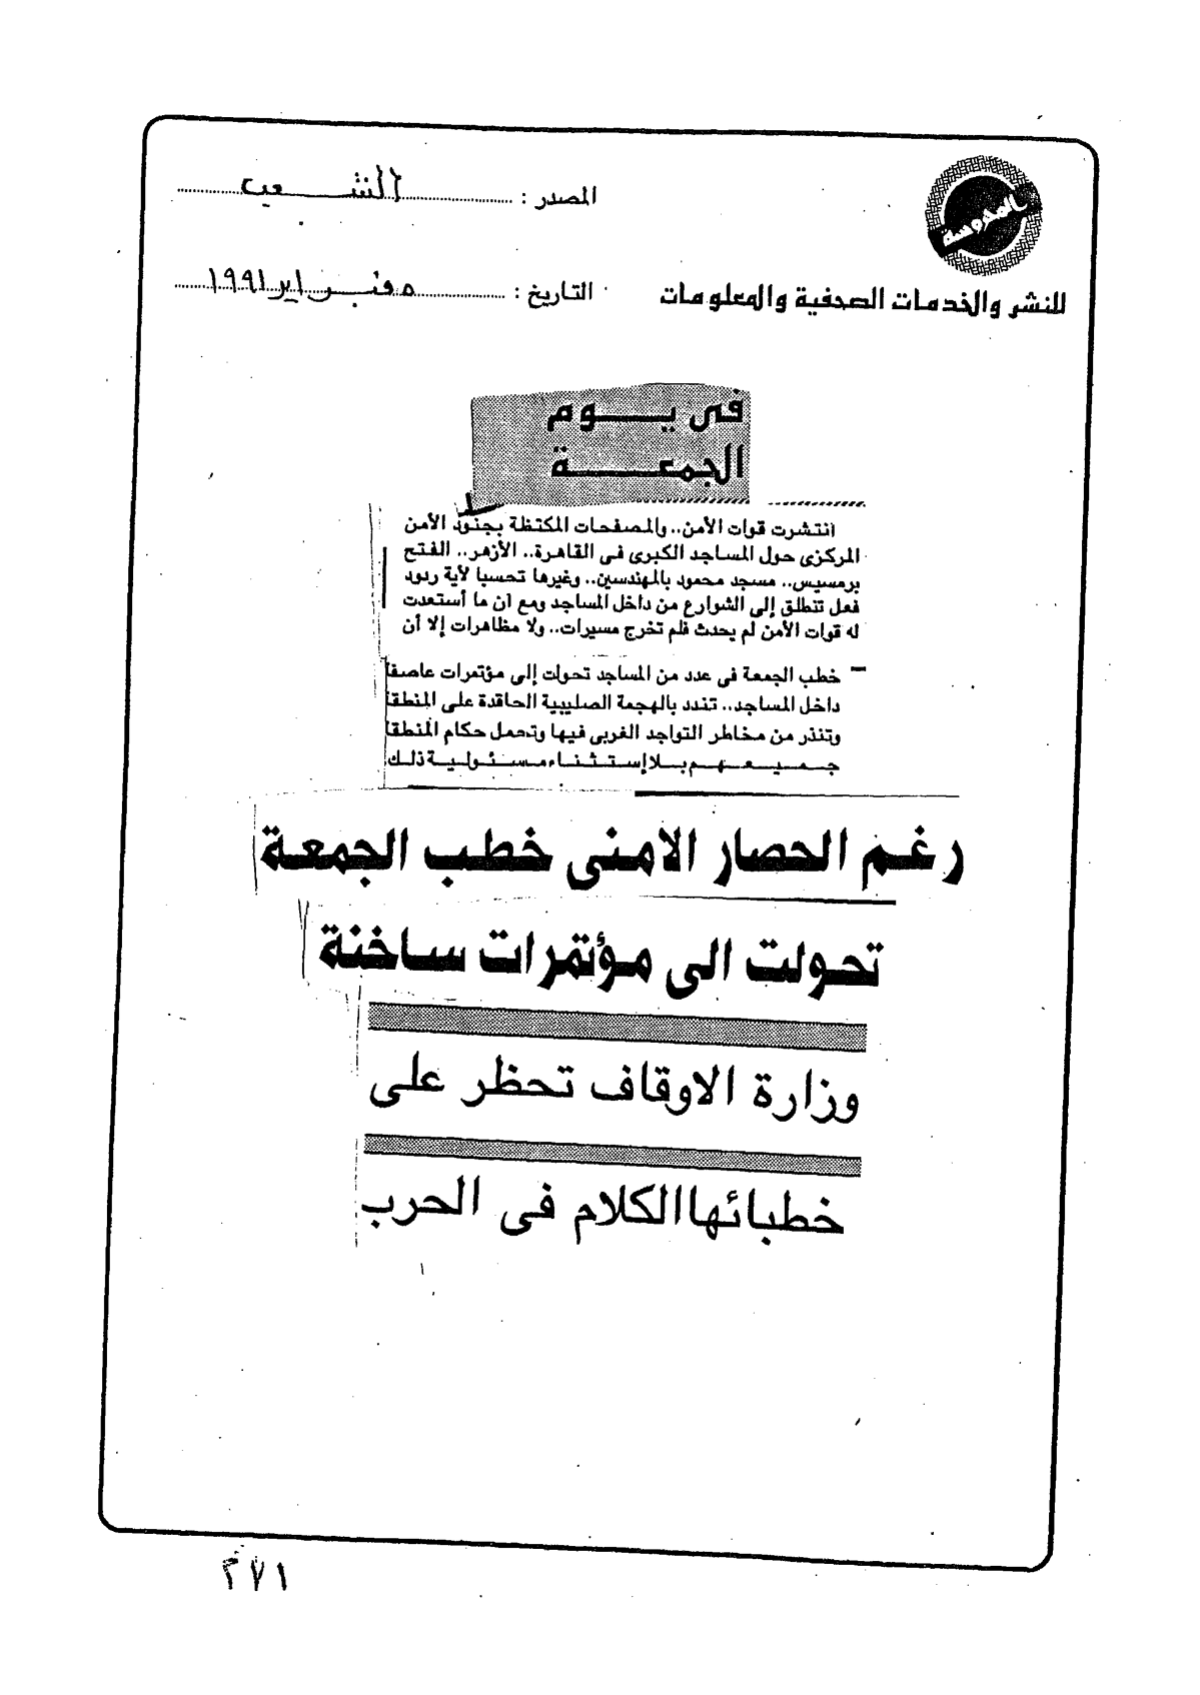 المحروسة
للنشر والخدمات الصحفية والمعلومات
المصدر : الشعب
التاريخ : ٥ فبراير ١٩٩١
فى يوم
الجمعة
انتشرت قوات الأمن.. والمصفحات المكتظة بجنود الأمن
المركزى حول المساجد الكبرى فى القاهرة.. الأزهر.. الفتح
برمسيس.. مسجد محمود بالمهندسين.. وغيرها تحسبا لأية ردود
فعل تنطلق إلى الشوارع من داخل المساجد ومع أن ما أستعدت
له قوات الأمن لم يحدث فلم تخرج مسيرات.. ولا مظاهرات إلا أن
خطب الجمعة فى عدد من المساجد تحولت إلى مؤتمرات عاصفة
داخل المساجد.. تندد بالهجمة الصليبية الحاقدة على المنطقة
وتنذر من مخاطر التواجد الغربى فيها وتحمل حكام المنطقة
جميعهم بلا إستثناء مسئولية ذلك
رغم الحصار الامنى خطب الجمعة
تحولت الى مؤتمرات ساخنة
وزارة الاوقاف تحظر على
خطبائها الكلام فى الحرب